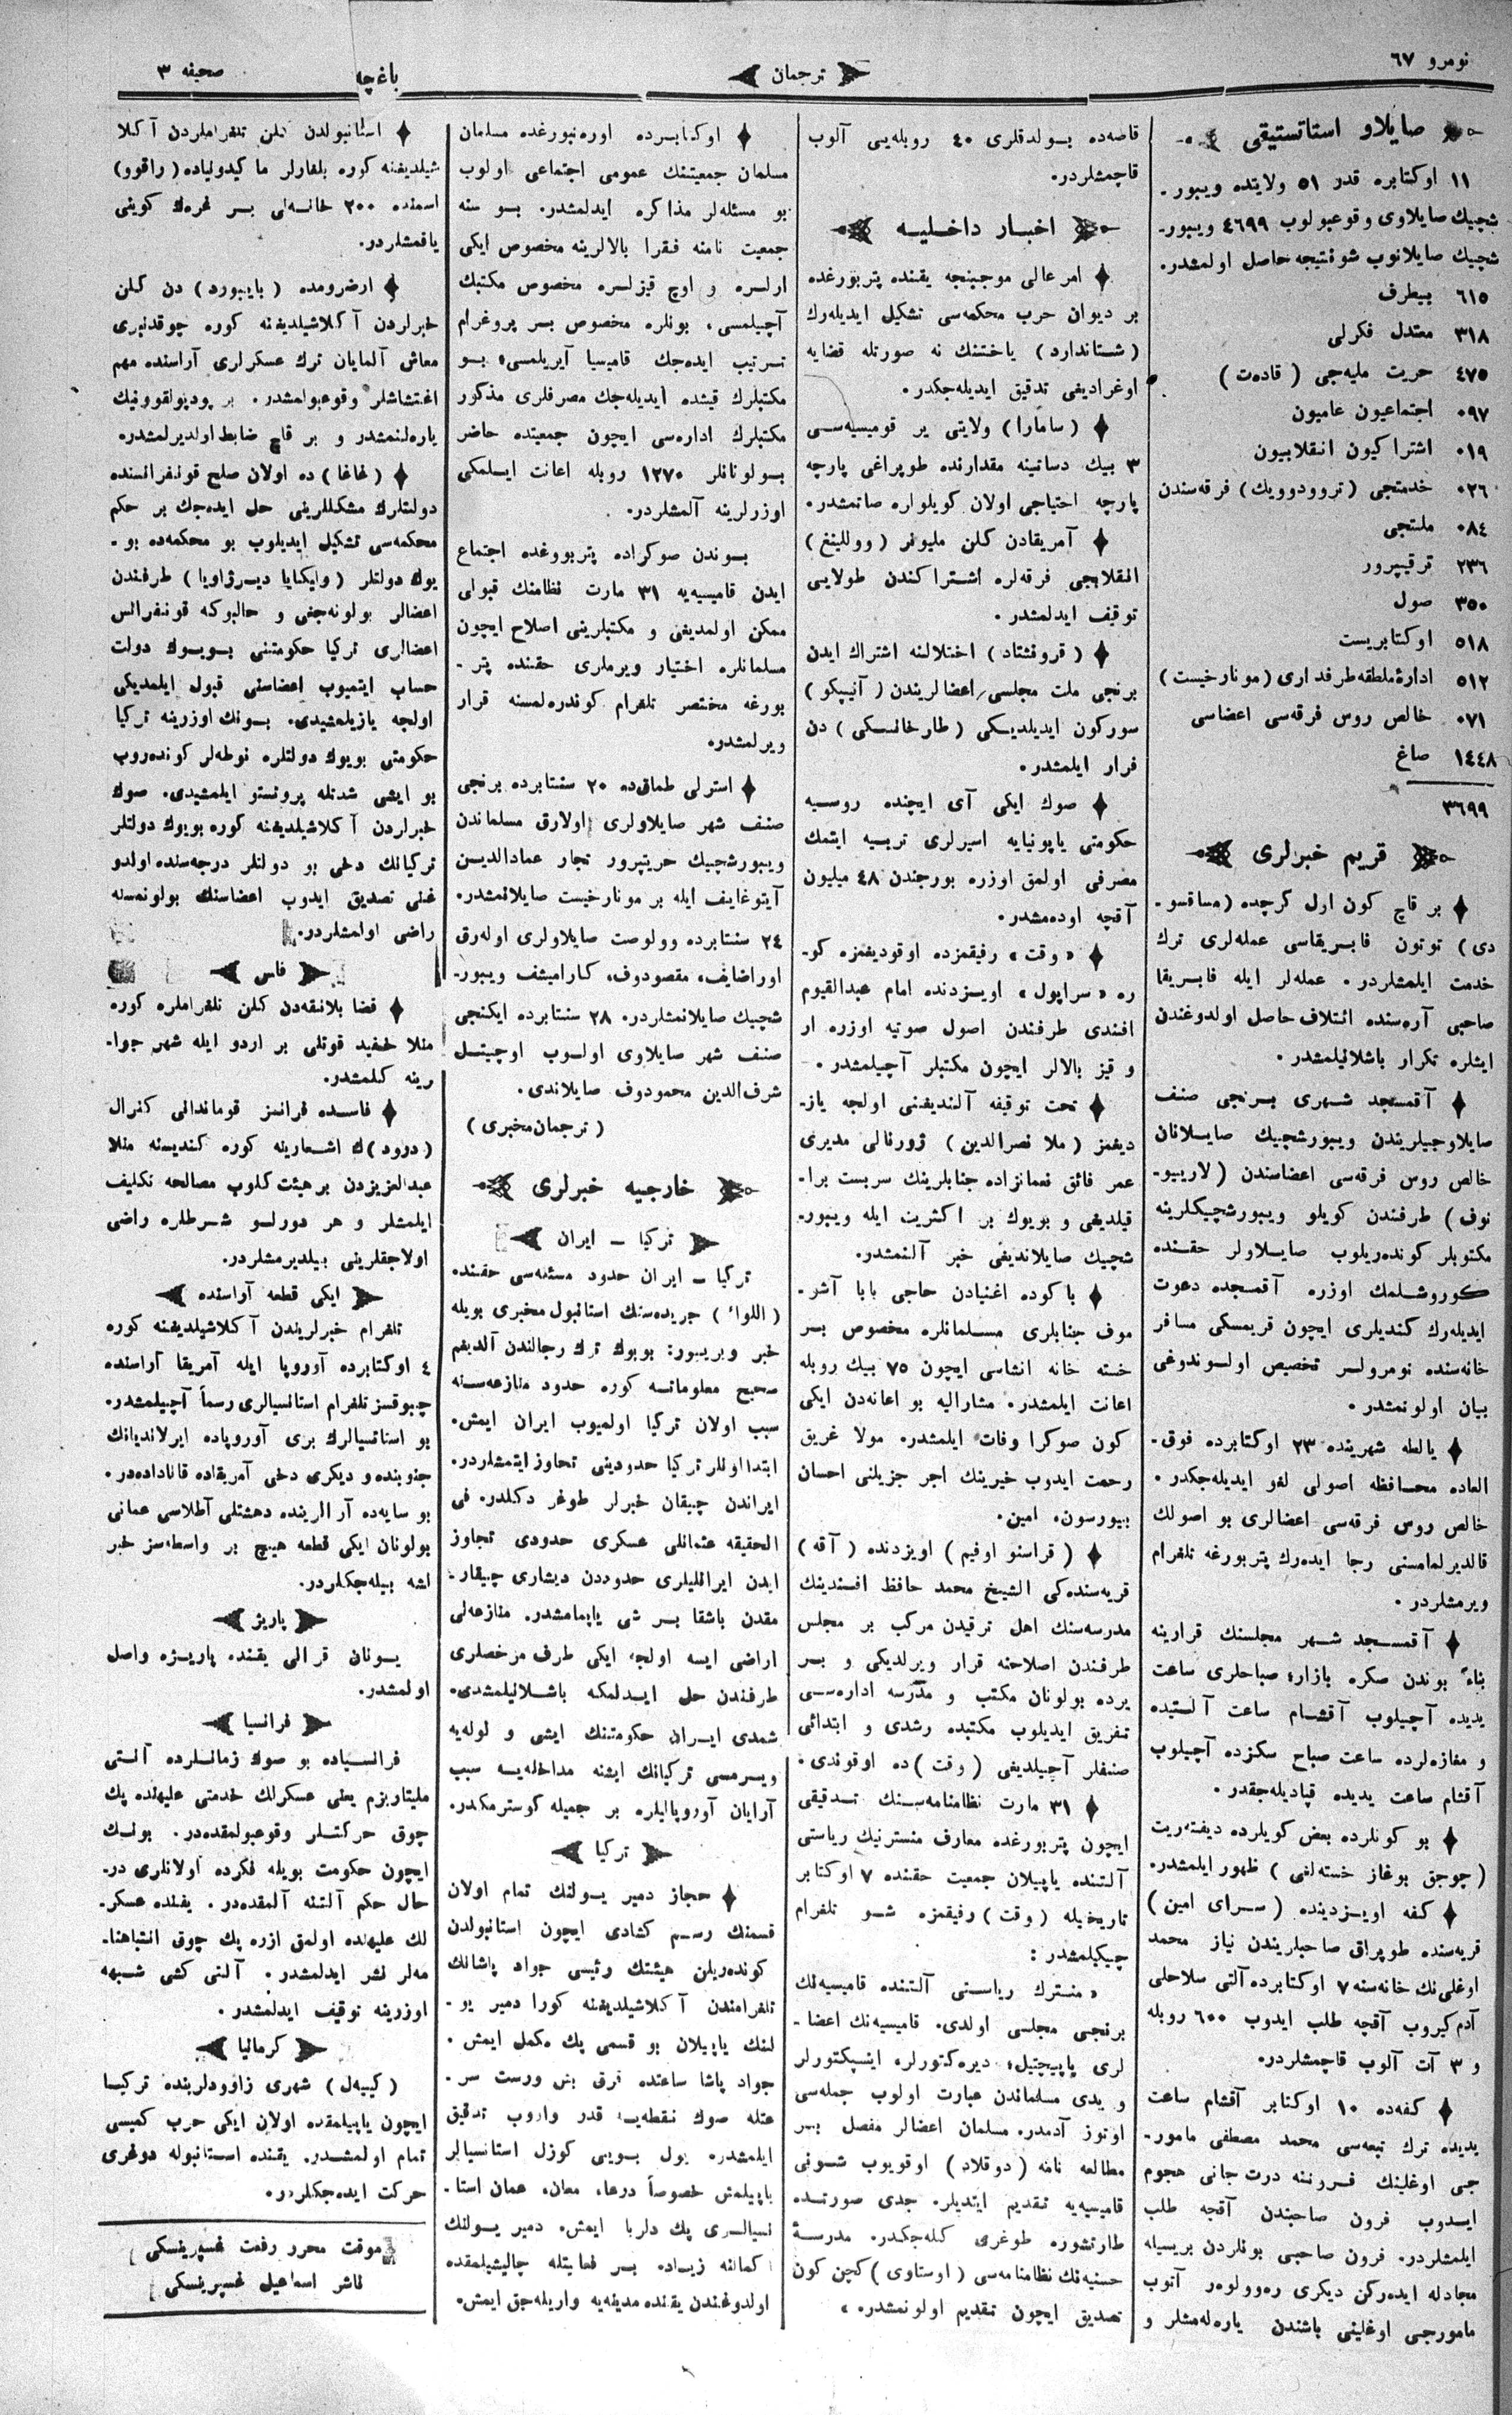 نومرو ٦٧
ترجمان
باغچه
صحیفه ٣
صایلاو استاتستیقی
١١ اوكتابره قدر ٥١ ولایتده ویبور-
شچیك صایلاوی وقوعبولوب ٤٦٩٩ ویبور-
شچیك صایلانوب شو نتیجه حاصل اولمشدر.
٦١٥ بیطرف
٣١٨ معتدل فكرلی
٤٧٥ حریت ملیه‌جی (قادەت)
٠٩٧ اجتماعیون عامیون
٠١٩ اشتراكیون انقلابیون
٠٢٦ خدمتجی (تروودوویك) فرقه‌سندن
٠٨٤ ملتجی
٢٣٦ ترقیپرور
٣٥٠ صول
٥١٨ اوكتابریست
٥١٢ ادارۀ مطلقه طرفداری (مونارخیست)
٠٧١ خالص روس فرقه‌سی اعضاسی
١٤٤٨ صاغ
٣٦٩٩
قریم خبرلری
بر قاچ كون اول كرچده (مساقسو-
دی) توتون فابریقاسی عمله‌لری ترك
خدمت ایلمشلردر. عمله‌لر ایله فابریقا
صاحبی آره‌سنده ائتلاف حاصل اولدوغندن
ایشلره تكرار باشلانیلمشدر.
آقمسجد شهری برنجی صنف
صایلاوجیلریندن ویبورشچیك صایلانان
خالص روس فرقه‌سی اعضاسندن (لاریبو-
نوف) طرفندن كویلو ویبورشچیكلرینه
مكتوبلر كونده‌ریلوب صایلاولر حقنده
كوروشلمك اوزره آقمسجده دعوت
ایدیله‌رك كندیلری ایچون قریمسكی مسافر
خانه‌سنده نومرولر تخصیص اولوندوغی
بیان اولونمشدر.
یالطه شهرینده ٢٣ اوكتابرده فوق-
العاده محافظه اصولی لغو ایدیله‌جكدر.
خالص روس فرقه‌سی اعضالری بو اصولك
قالدیرلمامسنی رجا ایده‌رك پتربورغه تلغرام
ویرمشلردر.
آقمسجد شهر مجلسنك قرارینه
بناءً بوندن صكره بازار، صباحلری ساعت
یدیده آچیلوب آقشام ساعت آلتیده
و مغازه‌لرده ساعت صباح سكزده آچیلوب
آقشام ساعت یدیده قپادیله‌جقدر.
بو كونلرده بعض كویلرده دیفته‌ریت
(چوجق بوغاز خسته‌لغی) ظهور ایلمشدر.
كفه اویزدینده (سرای امین)
قریه‌سنده طوپراق صاحبلریندن نیاز محمد
اوغلی‌نك خانه‌سنه ٧ اوكتابرده آلتی سلاحلی
آدم كیروب آقچه طلب ایدوب ٦٠٠ روبله
و ٣ آت آلوب قاچمشلردر.
كفه‌ده ١٠ اوكتابر آقشام ساعت
یدیده ترك تبعه‌سی محمد مصطفی مامور-
جی اوغلینك فروننه درت جانی هجوم
ایدوب فرون صاحبندن آقچه طلب
ایلمشلردر. فرون صاحبی بونلردن بریسیله
مجادله ایدەركن دیكری ره‌وولوەر آتوب
مامورجی اوغلینی باشندن یاره‌له‌مشلر و
قاصه‌ده بولدقلری ٤٠ روبله‌یی آلوب
قاچمشلردر.
اخبار داخلیه
امر عالی موجبنجه یقنده پتربورغده
بر دیوان حرب محكمه‌سی تشكیل ایدیله‌رك
(شتاندارد) یاختنك نه صورتله قضایه
اوغرادیغی تدقیق ایدیله‌جكدر.
(سامارا) ولایتی یر قومیسیه‌سی
٣ بیك دساتینه مقدارنده طوپراغی پارچه
پارچه احتیاجی اولان كویلولره صاتمشدر.
آمریقادن كلن ملیونر (وولینغ)
انقلابجی فرقه‌لره اشتراكندن طولایی
توقیف ایدلمشدر.
(قرونشتاد) اختلالنه اشتراك ایدن
برنجی ملت مجلسی اعضالریندن (آنیپكو)
سوركون ایدیلدیكی (طارخانسكی) دن
فرار ایلمشدر.
صوك ایكی آی ایچنده روسیه
حكومتی یاپونیایه اسیرلری تربیه ایتمك
مصرفی اولمق اوزره بورجندن ٤٨ میلیون
آقچه اوده‌مشدر.
«وقت» رفیقمزده اوقودیغمزه كو-
ره «سراپول» اویزدنده امام عبدالقیوم
افندی طرفندن اصول صوتیه اوزره ار
و قیز بالالر ایچون مكتبلر آچیلمشدر.
تحت توقیفه آلندیغنی اولجه یاز-
دیغمز (ملا نصرالدین) ژورنالی مدیری
عمر فائق نعمانزاده جنابلرینك سربست برا-
قیلدیغی و بویوك بر اكثریت ایله ویبور-
شچیك صایلاندیغی خبر آلنمشدر.
باكوده اغنیادن حاجی بابا آشر-
موف جنابلری مسلمانلره مخصوص بر
خسته خانه انشاسی ایچون ٧٥ بیك روبله
اعانت ایلمشدر. مشارالیه بو اعانه‌دن ایكی
كون صوكرا وفات ایلمشدر. مولا غریق
رحمت ایدوب خیرینك اجر جزیلنی احسان
بیورسون، امین.
(قراسنو اوفیم) اویزدنده (آقه)
قریه‌سنده‌كی الشیخ محمد حافظ افندینك
مدرسه‌سنك اهل ترقیدن مركب بر مجلس
طرفندن اصلاحنه قرار ویرلدیكی و بر
یرده بولونان مكتب و مدرسه اداره‌سی
تفریق ایدیلوب مكتبده رشدی و ابتدائی
صنفلر آچیلدیغی (وقت) ده اوقوندی.
٣١ مارت نظامنامه‌سنك تدقیقی
ایچون پتربورغده معارف منسترنیك ریاستی
آلتنده یاپیلان جمعیت حقنده ٧ اوكتابر
تاریخیله (وقت) رفیقمزه شو تلغرام
چیكیلمشدر:
«منسترك ریاستی آلتنده قامیسیه‌نك
برنجی مجلسی اولدی. قامیسیه‌نك اعضا-
لری پاپیچتیل، دیره‌كتورلر، اینسپكتورلر
و یدی مسلماندن عبارت اولوب جمله‌سی
اوتوز آدمدر. مسلمان اعضالر مفصل بر
مطالعه نامه (دوقلاد) اوقویوب شونی
قامیسیه‌یه تقدیم ایتدیلر. جدی صورتده
طارتشوره طوغری كله‌جكدر. مدرسۀ
حسنیه‌نك نظامنامه‌سی (اوستاوی) كچن كون
تصدیق ایچون تقدیم اولونمشدر.»
اوكتابرده اوره‌نبورغده مسلمان
مسلمان جمعیتنك عمومی اجتماعی اولوب
بو مسئله‌لر مذاكره ایدلمشدر. بو سنه
جمعیت نامنه فقرا بالالرینه مخصوص ایكی
ارلره و اوچ قیزلره مخصوص مكتبك
آچیلمسی، بونلره مخصوص بر پروغرام
ترتیب ایده‌جك قامیسیا آیریلمسی، بو
مكتبلرك قیشده ایدیله‌جك مصرفلری مذكور
مكتبلرك اداره‌سی ایچون جمعیتده حاضر
بولونانلر ١٢٧٠ روبله اعانت ایلمكی
اوزرلرینه آلمشلردر.
بوندن صوكراده پتربورغده اجتماع
ایدن قامیسیه‌یه ٣١ مارت نظامنك قبولی
ممكن اولمدیغی و مكتبلرینی اصلاح ایچون
مسلمانلره اختیار ویرملری حقنده پتر-
بورغه مختصر تلغرام كوندرەلمسنه قرار
ویرلمشدر.
استرلی طماق‌ده ٢٠ سنتابرده برنجی
صنف شهر صایلاولری اولارق مسلماندن
ویبورشچیك حریتپرور تجار عمادالدین
آیتوغایف ایله بر مونارخیست صایلانمشدر.
٢٤ سنتابرده وولوست صایلاولری اوله‌رق
اوراضایف، مقصودوف، كارامیشف ویبور-
شچیك صایلانمشلردر. ٢٨ سنتابرده ایكنجی
صنف شهر صایلاوی اولوب اوچیتل
شرف‌الدین محمودوف صایلاندی.
(ترجمان مخبری)
خارجیه خبرلری
تركیا – ایران
تركیا – ایران حدود مسئله‌سی حقنده
(اللواء) جریده‌سنك استانبول مخبری بویله
خبر ویریور: بویوك ترك رجالندن آلدیغم
صحیح معلوماته كوره حدود منازعه‌سنه
سبب اولان تركیا اولمیوب ایران ایمش.
ابتدا اونلر تركیا حدودینی تجاوز ایتمشلردر.
ایراندن چیقان خبرلر طوغر دكلدر. فی
الحقیقه عثمانلی عسكری حدودی تجاوز
ایدن ایرانلیلری حدوددن دیشاری چیقار-
مقدن باشقا بر شی یاپمامشدر. منازعه‌لی
اراضی ایسه اولجه ایكی طرف مرخصلری
طرفندن حل ایدلمكه باشلانیلمشدی.
شمدی ایران حكومتنك ایشی و لوله‌یه
ویرمسی تركیانك ایشنه مداخله‌یه سبب
آرایان آوروپالیلره بر جمیله كوسترمكدر.
تركیا
حجاز دمیر یولنك تمام اولان
قسمنك رسم كشادی ایچون استانبولدن
كونده‌ریلن هیئتك رئیسی جواد پاشانك
تلغرامندن آكلاشیلدیغنه كورا دمیر یو-
لنك یاپیلان بو قسمی پك مكمل ایمش.
جواد پاشا ساعتده قرق بش ورست سر-
عتله صوك نقطه‌یه قدر واروب تدقیق
ایلمشدر. یول بویی كوزل استانسیالر
یاپیلمش خصوصاً درعا، معان، عمان استا-
نسیالری پك دلربا ایمش. دمیر یولنك
اكمالنه زیاده بر فعالیتله چالیشیلمقده
اولدوغندن یقنده مدینه‌یه واریله‌جق ایمش.
استانبولدن كلن تلغراملردن آكلا
شیلدیغنه كوره بلغارلر ماكیدونیاده (راقوو)
اسمنده ٢٠٠ خانه‌لی بر كویی
یاقمشلردر.
ارضرومده (بایبورد) دن كلن
خبرلردن آكلاشیلدیغنه كوره چوقدنبری
معاش آلمایان ترك عسكرلری آراسنده مهم
اغتشاشلر وقوعبولمشدر. بر پودپولقوونیك
یاره‌لنمشدر و بر قاچ ضابط اولدیرلمشدر.
(لاغا) ده اولان صلح قونفرانسنده
دولتلرك مشكللرینی حل ایده‌جك بر حكم
محكمه‌سی تشكیل ایدیلوب بو محكمه‌ده بو-
یوك دولتلر (وایكایا دیرژاویا) طرفندن
اعضالر بولونه‌جغی و حالبوكه قونفرانس
اعضالری تركیا حكومتنی بویوك دولت
حساب ایتمیوب اعضاسنی قبول ایلمدیكی
اولجه یازیلمشیدی. بونك اوزرینه تركیا
حكومتی بویوك دولتلره نوطه‌لر كونده‌روب
بو ایشی شدتله پروتستو ایلمشیدی. صوك
خبرلردن آكلاشیلدیغنه كوره بویوك دولتلر
تركیانك دخی بو دولتلر درجه‌سنده اولدو
غنی تصدیق ایدوب اعضاسنك بولونمسنه
راضی اولمشلردر.
فاس
قضا بلانقه‌دن كلن تلغراملره كوره
مثلا حفید قوتلی بر اردو ایله شهر جوا-
رینه كلمشدر.
فاسده فرانسز قوماندانی كنرال
(درود)ك اشعارینه كوره كندیسنه مثلا
عبدالعزیزدن بر هیئت كلوب مصالحه تكلیف
ایلمشلر و هر دورلو شرطلره راضی
اولاجقلرینی بیلدیرمشلردر.
ایكی قطعه آراسنده
تلغرام خبرلریندن آكلاشیلدیغنه كوره
٤ اوكتابرده آوروپا ایله آمریقا آراسنده
چیبوقسز تلغرام استانسیالری رسماً آچیلمشدر.
بو استانسیالرك بری آوروپاده ایرلاندیانك
جنوبنده و دیكری دخی آمریقاده قاناداده‌در.
بو سایه‌ده آرالرینده دهشتلی آطلاسی عمانی
بولونان ایكی قطعه هیچ بر واسطه‌سز خبر
لشه بیله‌جكلردر.
پاریز
یونان قرالی یقنده پاریزه واصل
اولمشدر.
فرانسیا
فرانسیاده بو صوك زمانلرده آنتی
ملیتاریزم یعنی عسكرلك خدمتی علیهنده پك
چوق حركتلر وقوعبولمقده‌در. بونك
ایچون حكومت بویله فكرده اولانلری در-
حال حكم آلتنه آلمقده‌در. یقنده عسكر-
لك علیهنده اولمق ازره پك چوق انتباهنا-
مه‌لر نشر ایدلمشدر. آلتی كشی شبهه
اوزرینه توقیف ایدلمشدر.
كرمانیا
(كییەل) شهری زاوودلرینده تركیا
ایچون یاپیلمقده اولان ایكی حرب كمیسی
تمام اولمشدر. یقنده استانبوله دوغری
حركت ایده‌جكلردر.
موقت محرر رفعت غسپرینسكی
ناشر اسماعیل غسپرینسكی